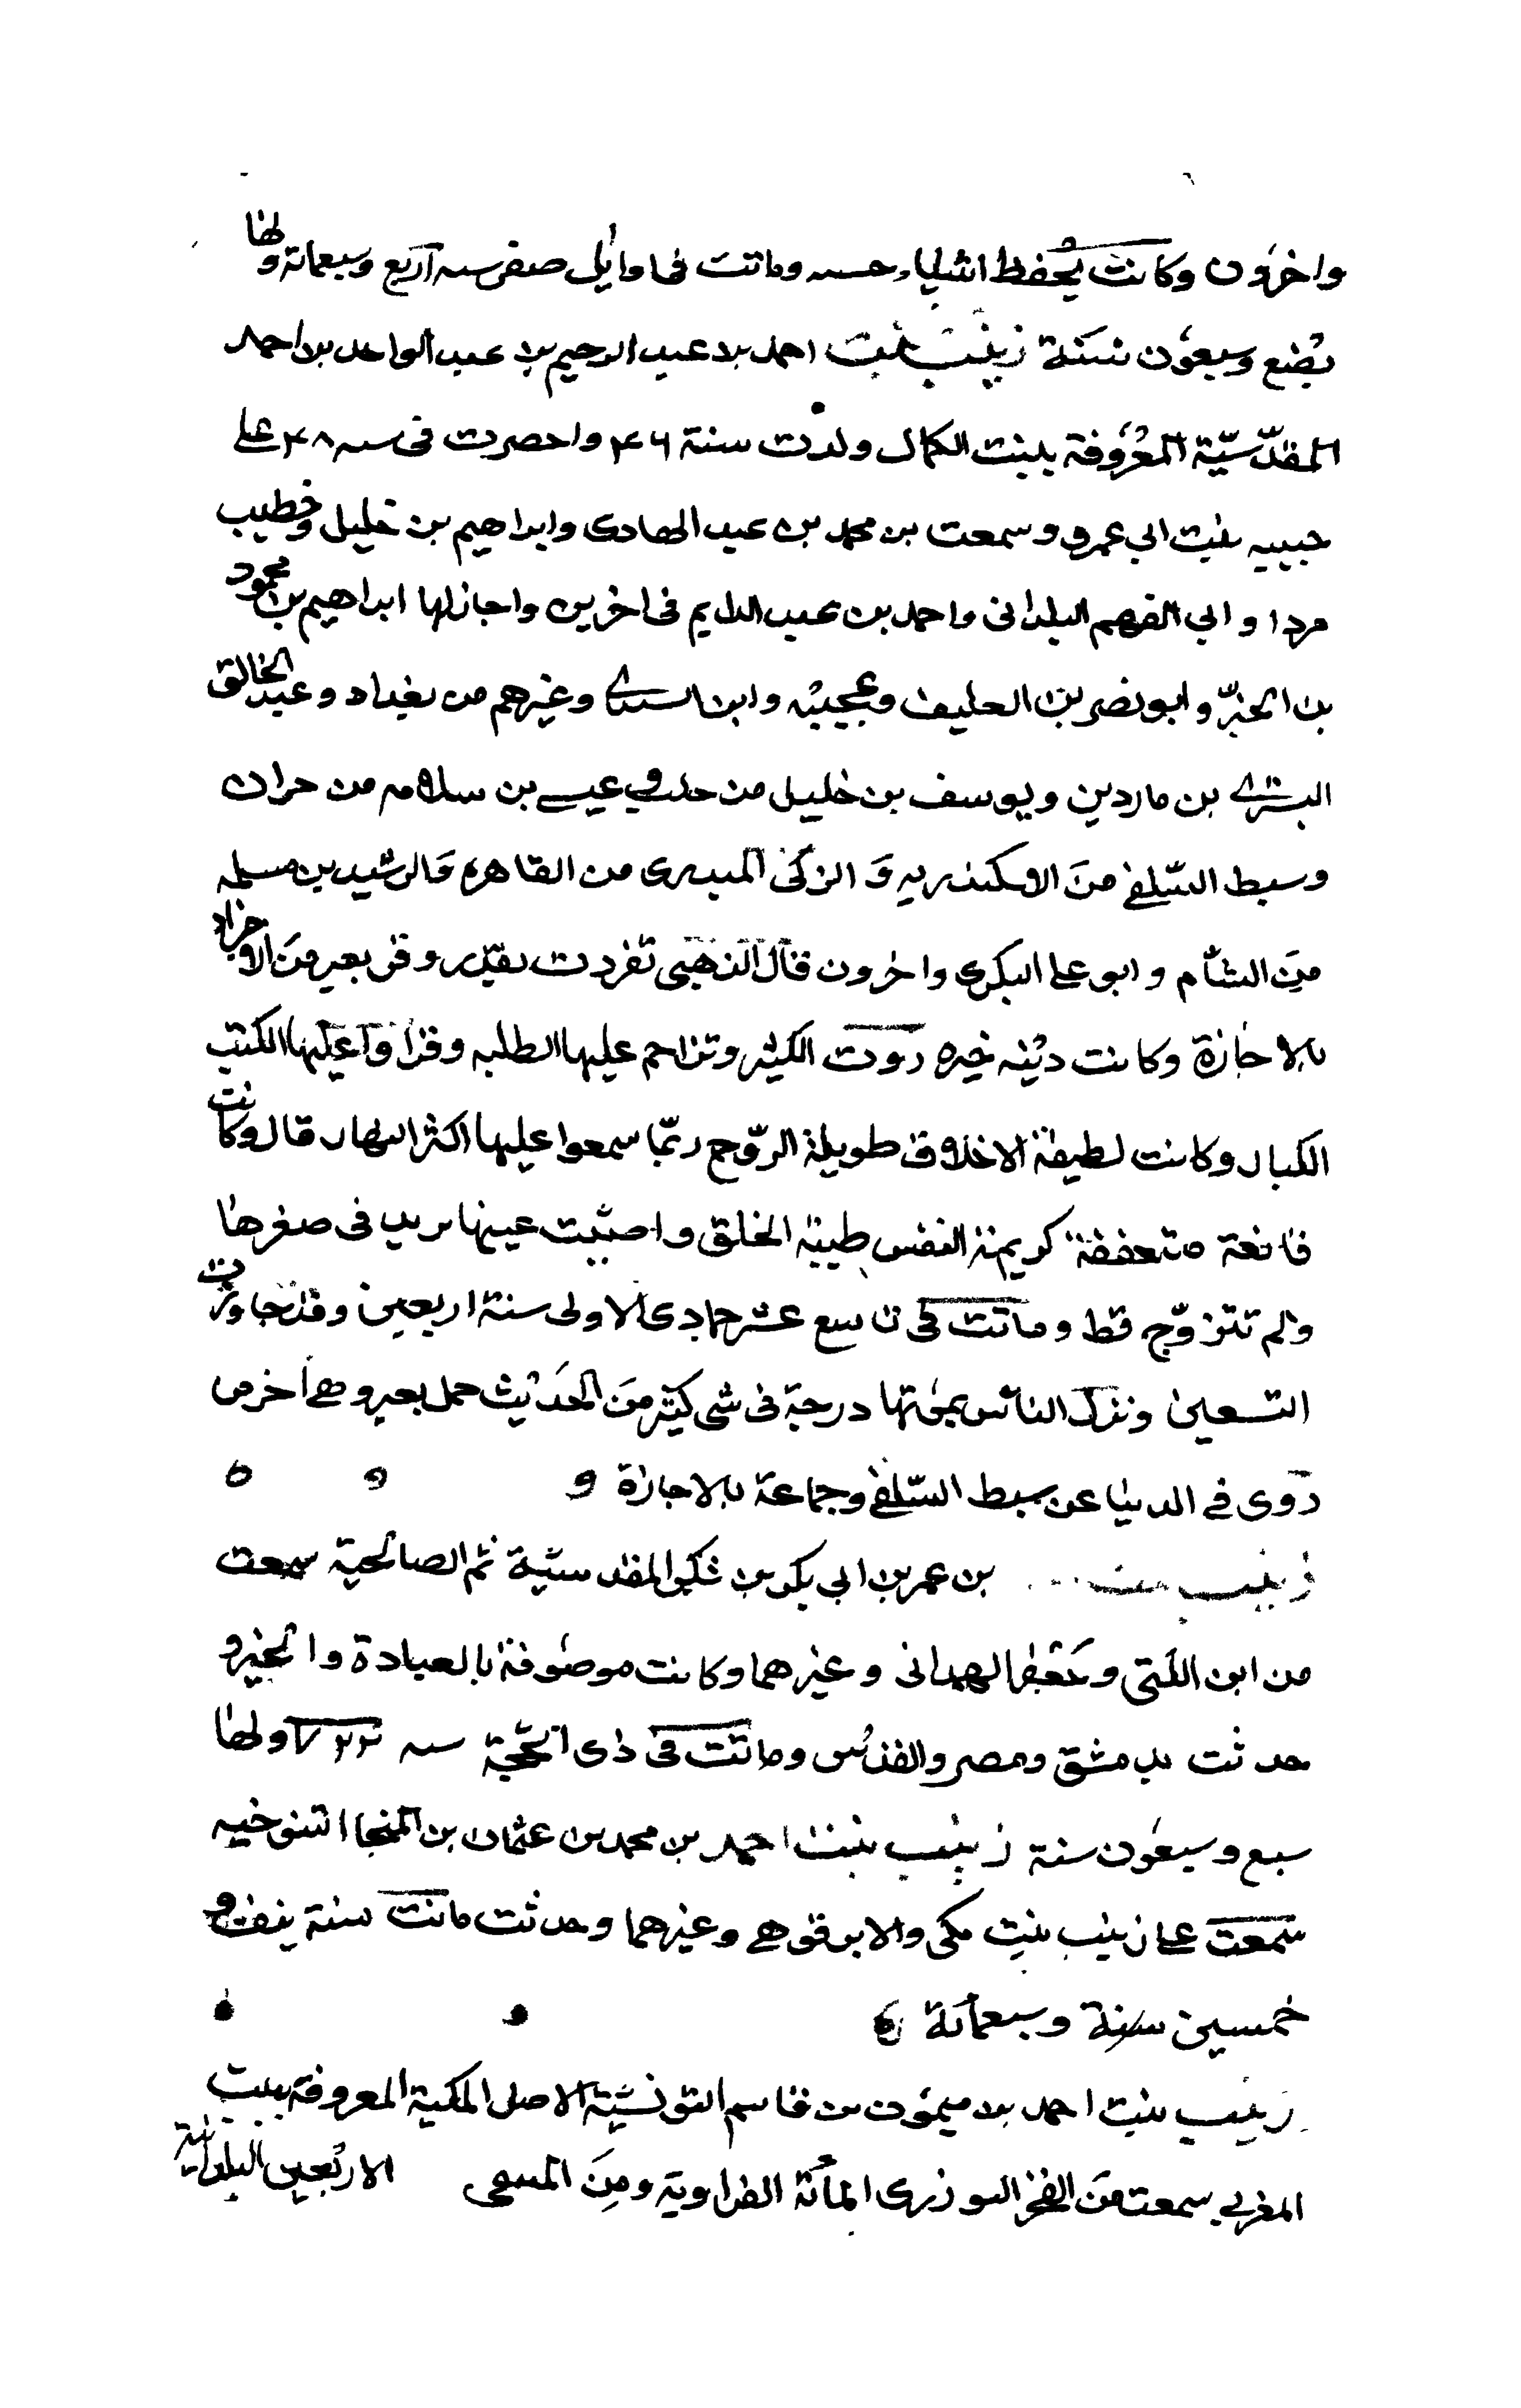 واخرون وكانت تحفظ اشياء حسنه وماتت في اوايل صفر سنه اربع وسبعمائة ولها
بضع وسبعون سنة زينب بنت احمد بن عبد الرحيم بن عبد الواحد بن احمد
المقدسيّة المعروفة ببنت الكمال ولدت سنة ٦٤٦ واحضرت في سنه ٦٤٨ على
حبيبه بنت ابي عمر وسمعت من محمد بن عبد الهادي وابراهيم بن خليل وخطيب
مردا وابي الفهم البلداني واحمد بن عبد الدايم في اخرين واجاز لها ابراهيم بن محمود
بن الخيّر وابو نصر بن العليف وعجيبه وابن السيدي وغيرهم من بغداد وعبد الخالق
النشتري بن ماردين ويوسف بن خليل من حلب وعيسى بن سلامه من حران
وسبط السّلفي منَ الاسكندريه وَالزكي المنذري من القاهره وَالرشيد بن مسلمه
منَ الشام وابو علي البكري واخرون قال الذهبي تفردت بقدر وقر بعير منَ الاجزاء
بالاجازة وكانت دينه خيره روت الكثير وتزاحم عليها الطلبه وقراوا عليها الكتب
الكبار وكانت لطيفة الاخلاق طويلة الرّوح ربّما سمعوا عليها اكثر النهار قال وكانت
قانعة متعففة كريمة النفس طيبة الخلق واصيبت عينها برمد في صغرها
ولم تتزوّج قط وماتت في تاسع عشر جمادى الاولى سنة اربعين وقد جاوزت
التسعين ونزل الناس بموتها درجة في شي كثير منَ الحديث حمل بعير وهي اخر من
روى في الدنيا عن سبط السّلفي وجماعة بالاجازة
زينب بنت بن عمر بن ابي بكر بن شكر المقدسيّة ثم الصالحية سمعت
من ابن اللتي وجعفر الهمداني وغيرهما وكانت موصوفة بالعبادة والخير و
حدثت بدمشق ومصر والقدس وماتت في ذي الحجّة سنه ٧٢٢ ولها
سبع وسبعون سنة زينب بنت احمد بن محمد بن عثمان بن المنجا التنوخيه
سمعت على زينب بنت مكي والابرقوهي وغيرهما وحدثت ماتت سنة نيف و
خمسين سنة وسبعمائة
زينب بنت احمد بن ميمون بن قاسم التونسيّة الاصل المكية المعروفة ببنت
المغربي سمعت منَ الفخر التوزري المائة الفراوية ومِنَ المسمى الاربعين البلدانية